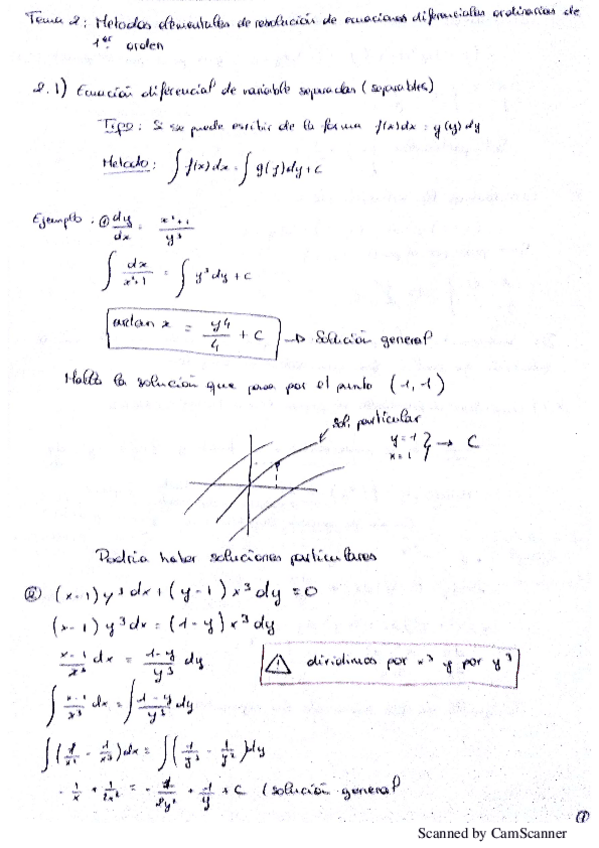 Tema 2: Metodos elementales de resolución de ecuaciones diferenciales ordinarias de
1er orden
2.1) Ecuación diferencial de variable separadas (separables)
Tipo: Si se puede escribir de la forma f(x)dx = g(y)dy
Metodo: ∫ f(x)dx = ∫ g(y)dy + C
Ejemplo. ① dy/dx = x²+1/y³
∫ dx/x²+1 = ∫ y³dy + C
artan x = y⁴/4 + C → Solución general
Halla la solución que pasa por el punto (1,1)
sol. particular
y=1
x=1 } → C
Podría haber soluciones particulares
② (x-1)y³dx + (y-1)x³dy = 0
(x-1)y³dx = (1-y)x³dy
x-1/x³ dx = 1-y/y³ dy
⚠ dividimos por x³ y por y³
∫ x-1/x³ dx = ∫ 1-y/y³ dy
∫(1/x² - 1/x³)dx = ∫(1/y³ - 1/y²)dy
-1/x + 1/2x² = -1/2y² + 1/y + C (solución general
①
Scanned by CamScanner